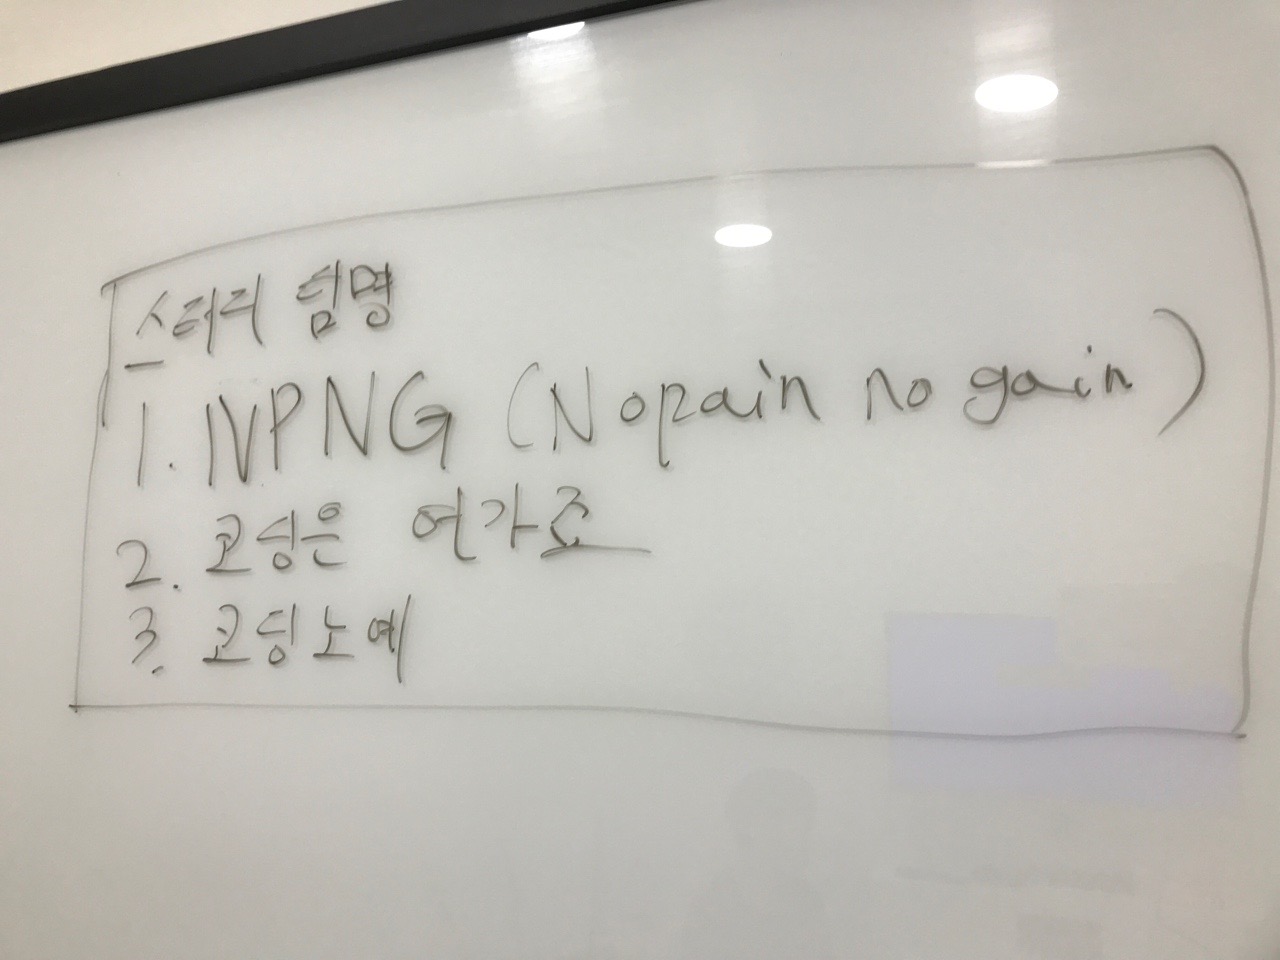 스터디 팀명
1. NPNG (No pain no gain)
2. 코딩은 여가죠
3. 코딩노예